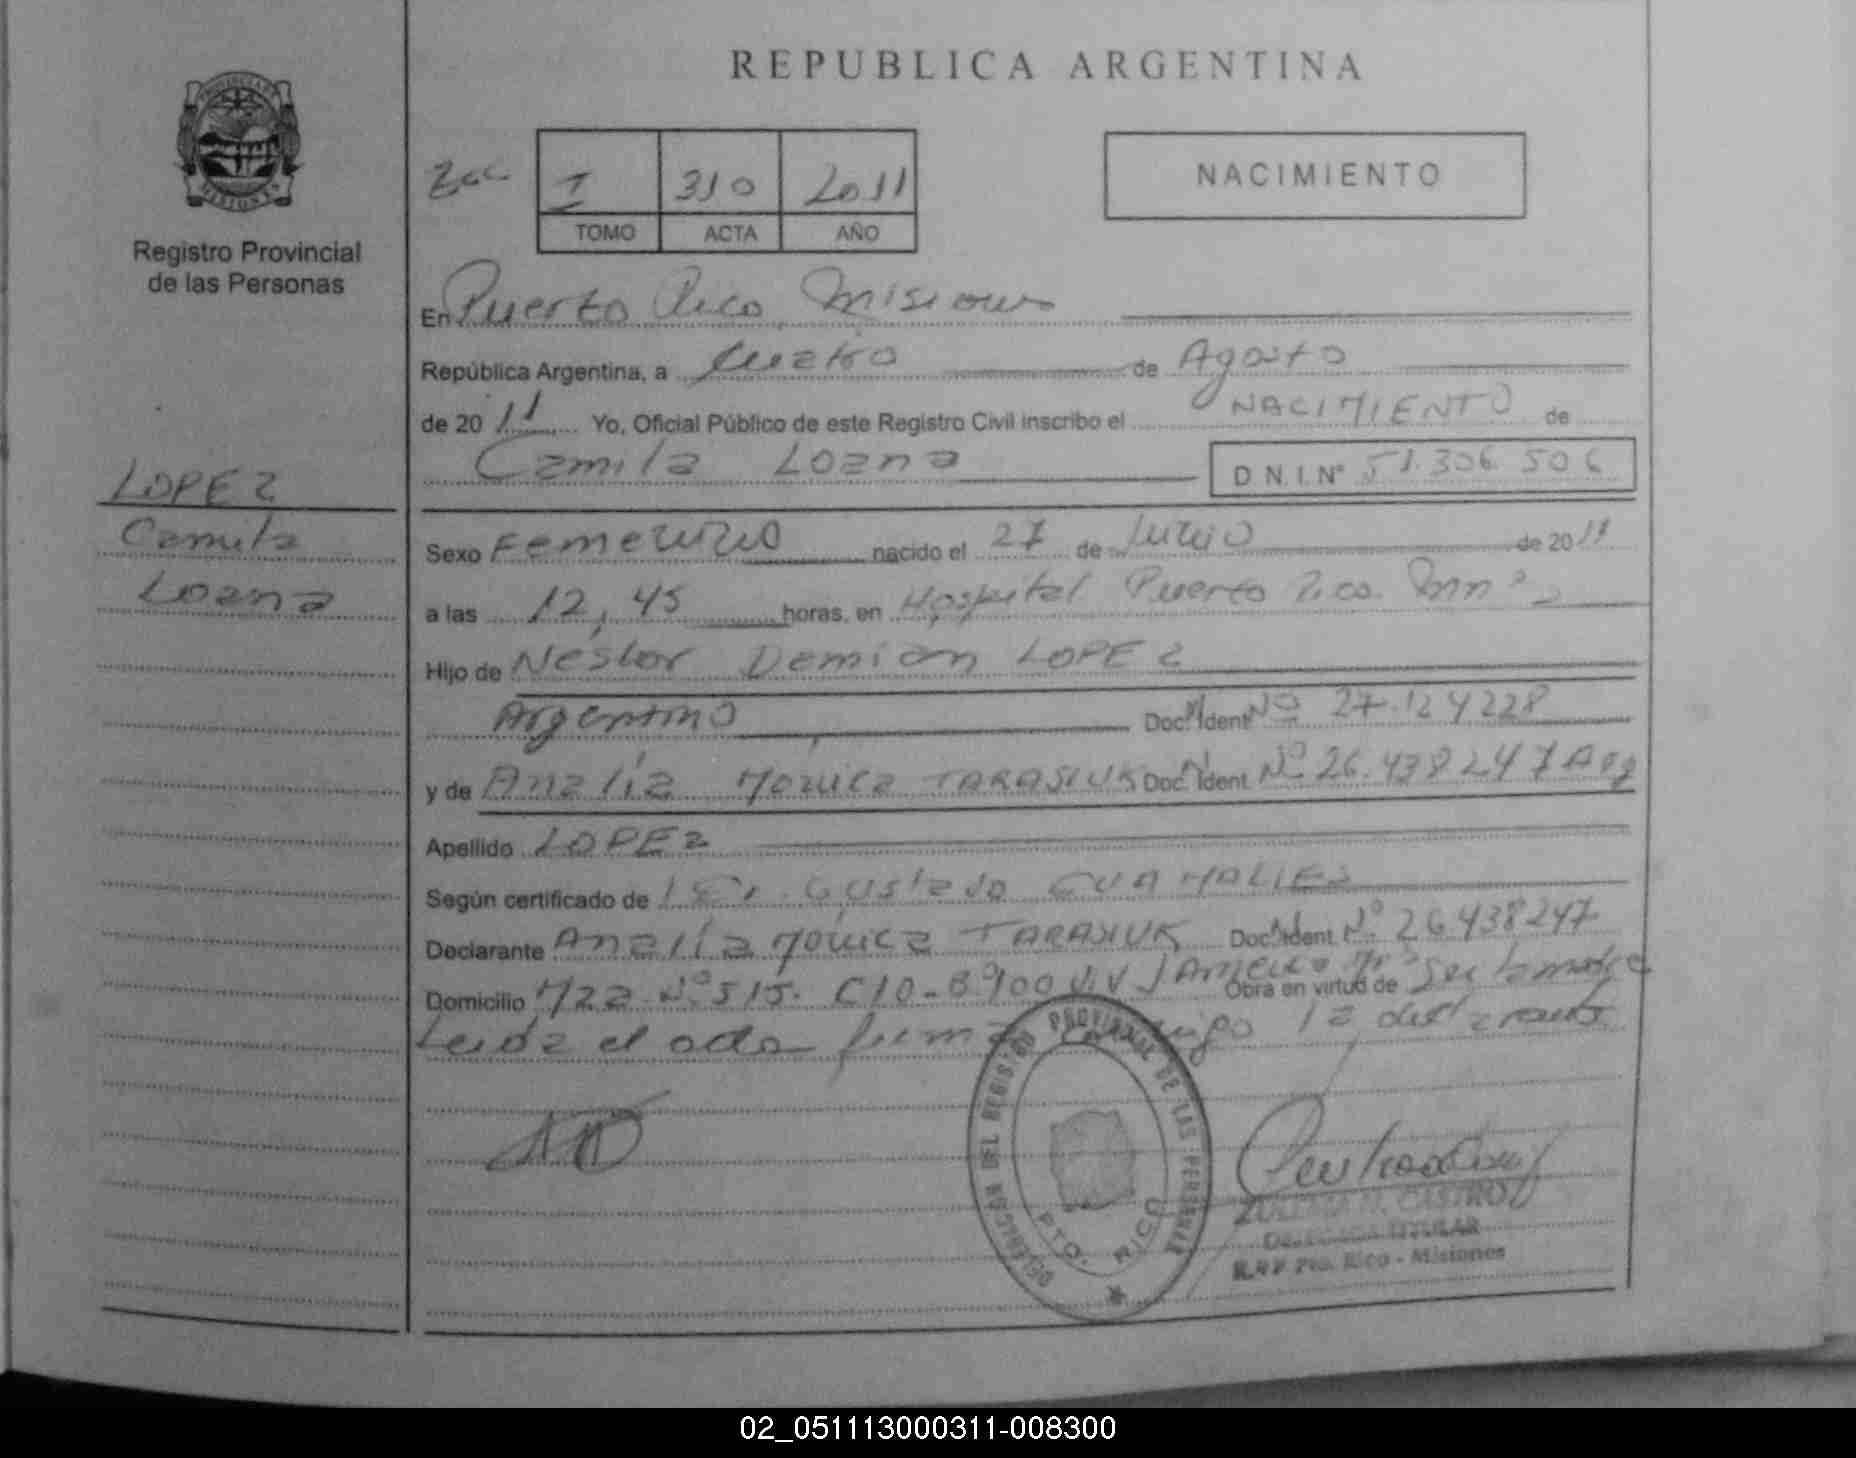 REPUBLICA ARGENTINA
PROVINCIA DE
MISIONES
Registro Provincial
de las Personas
I 310 2011
TOMO ACTA AÑO
NACIMIENTO
En Puerto Rico Misiones
República Argentina, a cuatro de Agosto
de 2011 Yo, Oficial Público de este Registro Civil inscribo el NACIMIENTO de
Camila Loana D.N.I.Nº 51.306.506
LOPEZ
Camila
Loana
Sexo Femenino nacido el 27 de Junio de 2011
a las 12,45 horas, en Hospital Puerto Rico
Hijo de Nestor Demian LOPEZ
Argentino Doc. Ident Nº 27.124228
y de Analía Monica TARASIUK Doc. Ident. Nº 26.438247 Arg
Apellido LOPEZ
Según certificado de Gustavo
Declarante Analía Monica TARASIUK Doc. Ident. Nº 26438247
Domicilio Nº 515. Obra en virtud de
Leida el acta la declarante
DELEGACION DEL REGISTRO PROVINCIAL DE LAS PERSONAS
PTO. RICO
ZULEMA N. CASTRO
DELEGADA TITULAR
Pto. Rico - Misiones
02_051113000311-008300